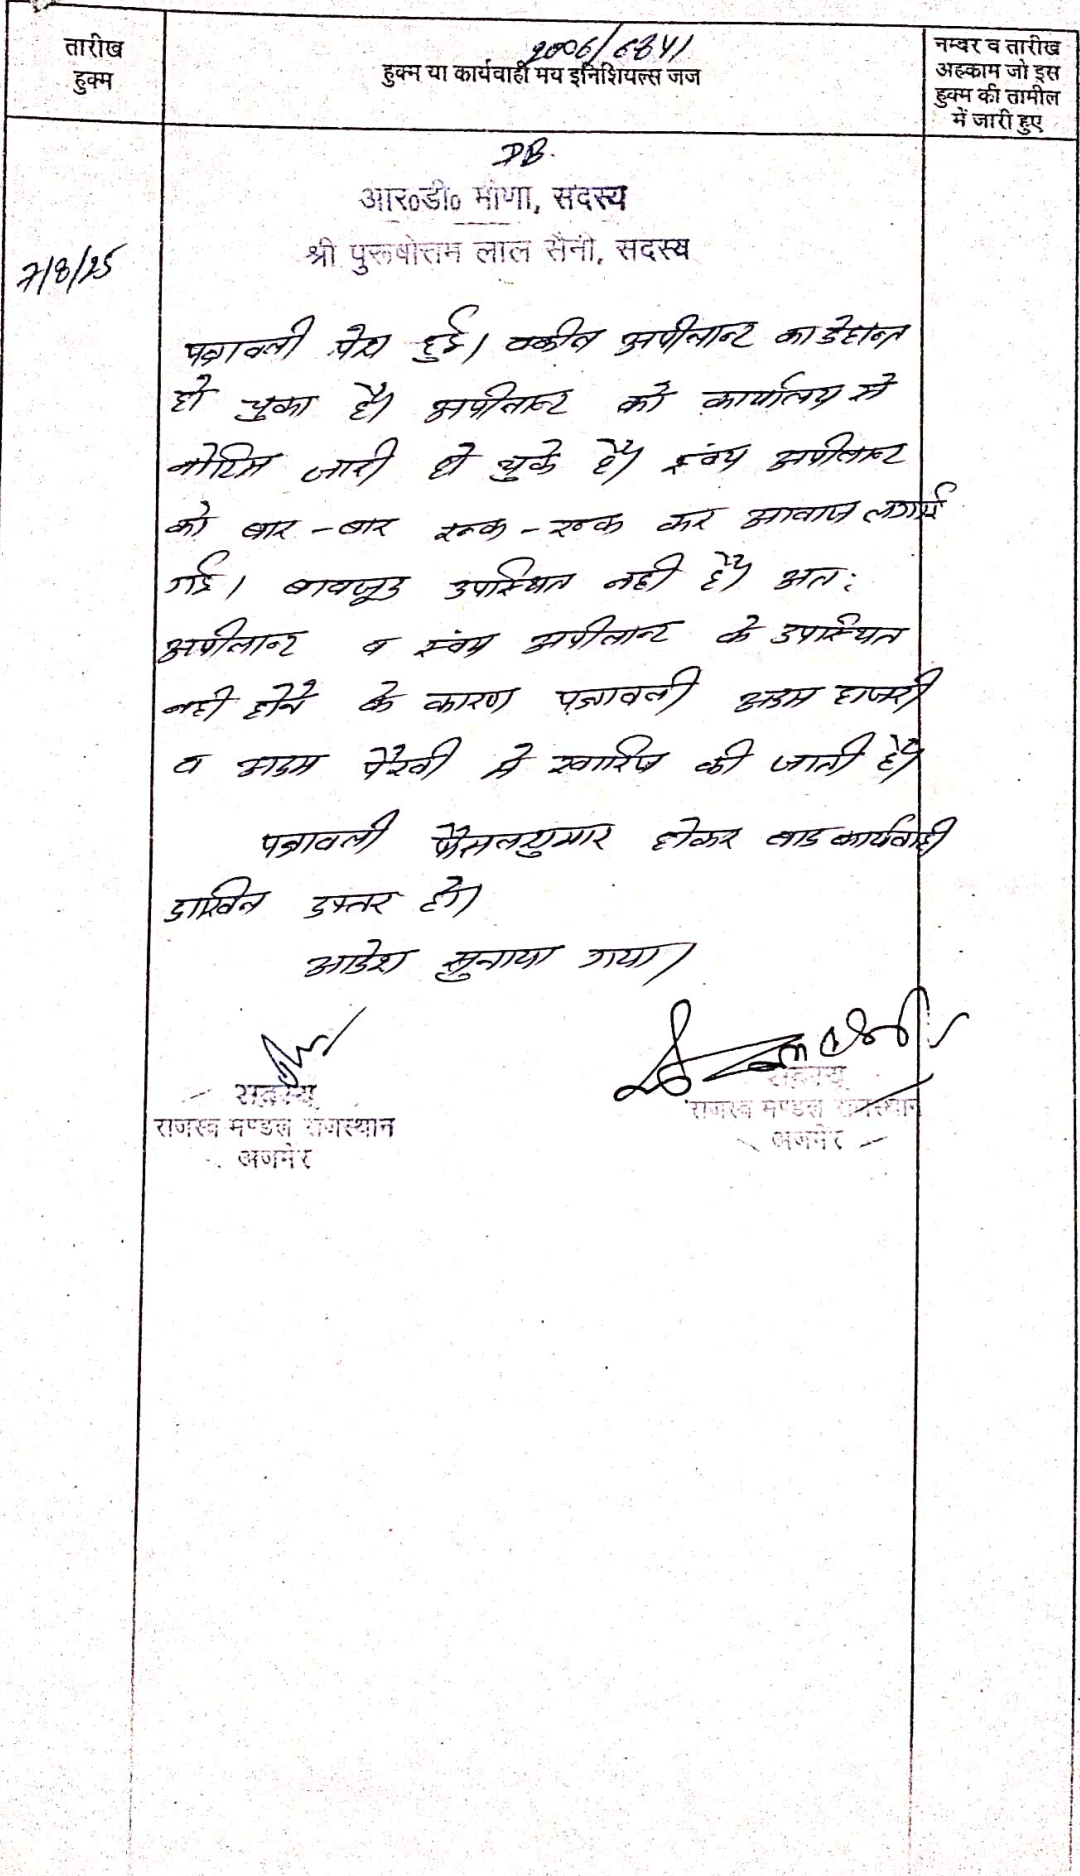 तारीख
हुक्म
2006/6841
हुक्म या कार्यवाही मय इनिशियल्स जज
नम्बर व तारीख
अहकाम जो इस
हुक्म की तामील
में जारी हुए
DB.
आर०डी० मीणा, सदस्य
श्री पुरूषोत्तम लाल सैनी, सदस्य
7/8/25
पत्रावली पेश हुई। वकील अपीलान्ट का देहान्त
हो चुका है। अपीलान्ट को कार्यालय से
नोटिस जारी हो चुके है। स्वंय अपीलान्ट
को बार-बार रूक-रूक कर आवाज लगाई
गई। बावजूद उपस्थित नही है। अत:
अपीलान्ट व स्वंय अपीलान्ट के उपस्थित
नही होने के कारण पत्रावली अदम हाजरी
व अदम पैरवी मे खारिज की जाती है।
पत्रावली फैसलशुमार होकर बाद कार्यवाही
दाखिल दफ्तर हो।
आदेश सुनाया गया।
सदस्य
राजस्व मण्डल राजस्थान
अजमेर
सदस्य
राजस्व मण्डल राजस्थान
अजमेर